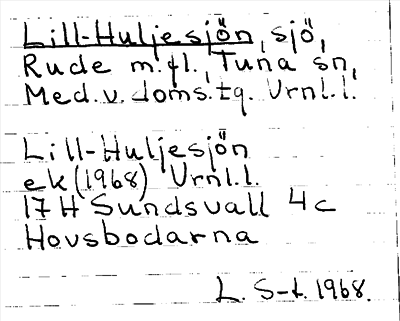 Lill-Huljesjön, sjö,
Rude m.fl., Tuna sn,
Med.v.doms.tg. Vrnl.l.
Lill-Huljesjön
ek (1968) Vrnl.l.
17 H Sundsvall 4c
Hovsbodarna
L. S-t. 1968.